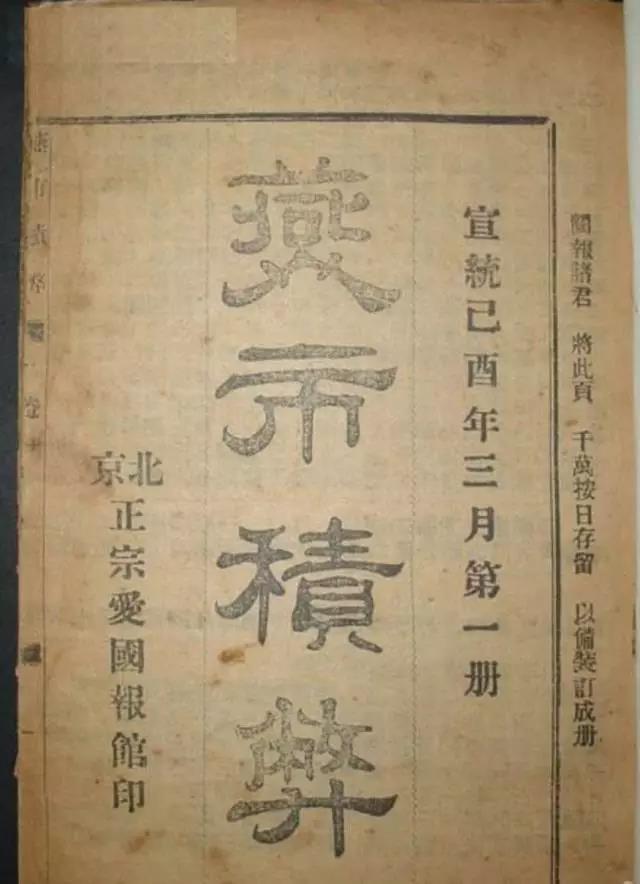 閱報諸君 將此頁 千萬按日存留 以備裝訂成册
宣統己酉年三月第一册
燕市積弊
北京
正宗愛國報館印